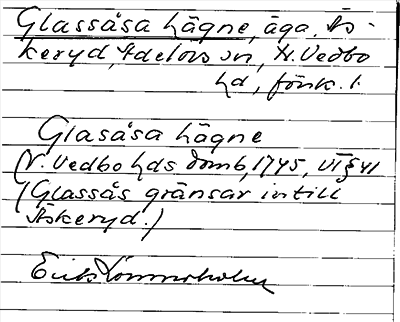 Glassåsa hägne, äga, Äs-
keryd, Adelövs sn, N. Vedbo
hd, förk. 1.
Glasåsa hägne
N. Vedbo hds domb, 1745, VI § 41
(Glassås gränsar intill
Äskeryd.)
Erik